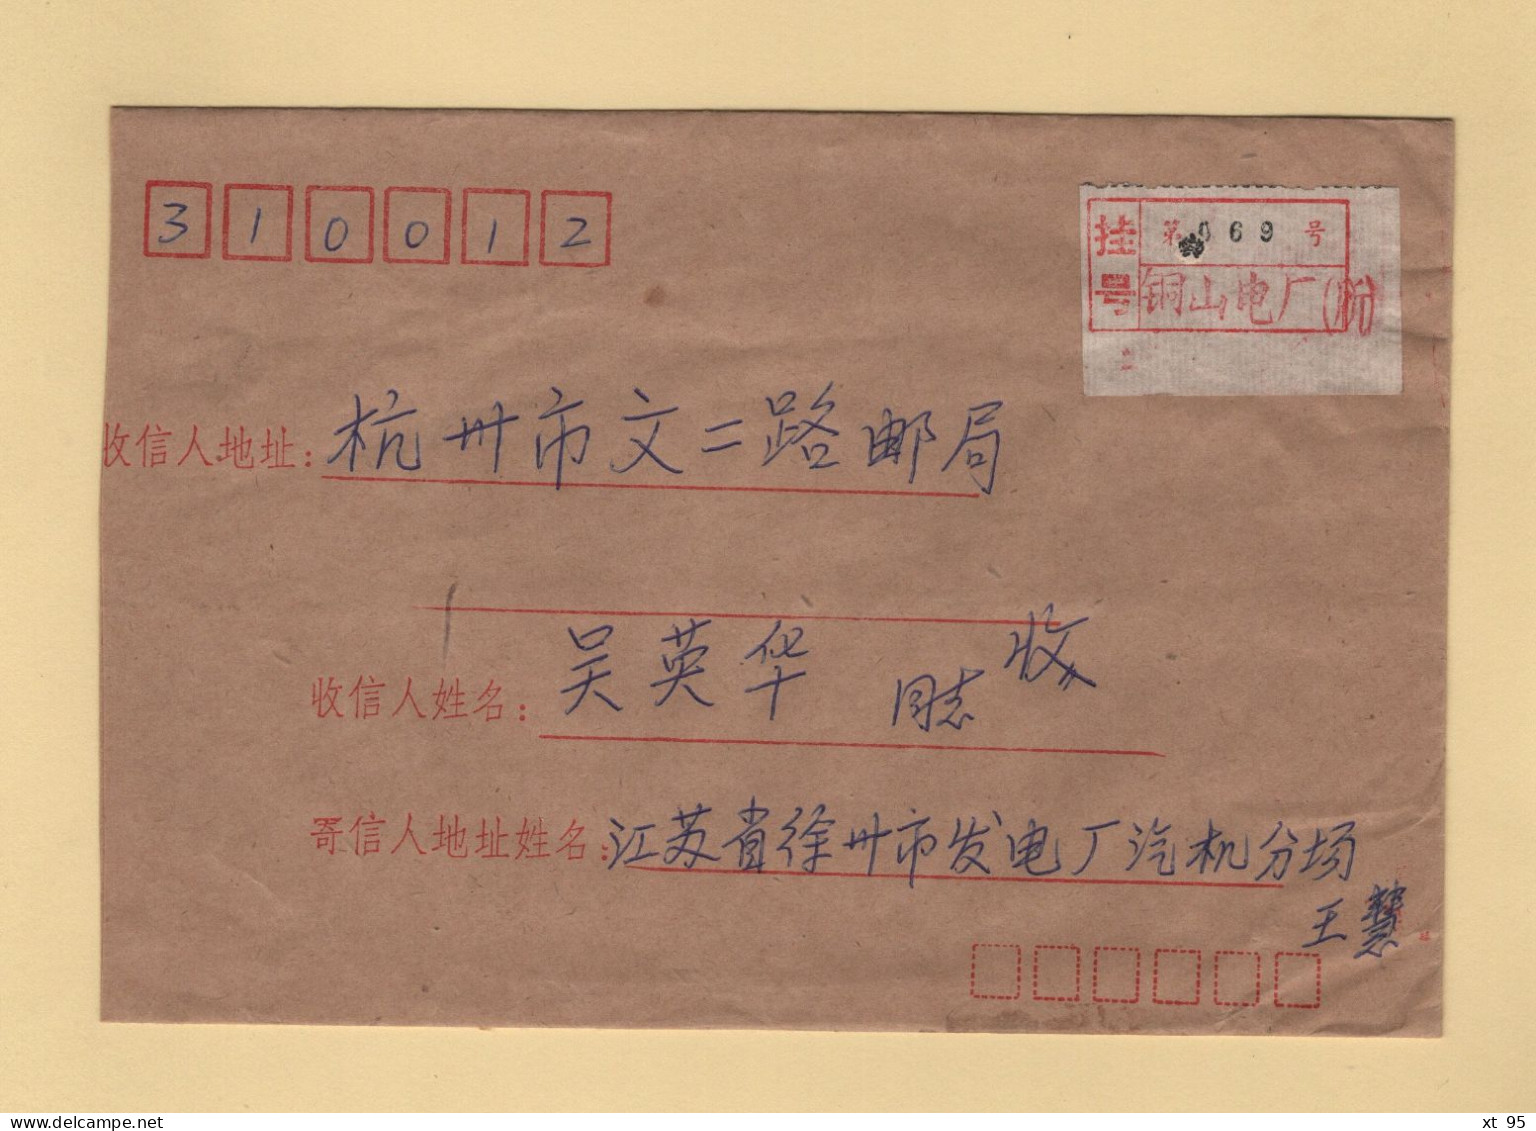 310012
挂号 第069号
铜山电厂(所)
收信人地址：杭州市文二路邮局
收信人姓名：吴英华 同志 收
寄信人地址姓名：江苏省徐州市发电厂汽机分场
王慧
xt 95